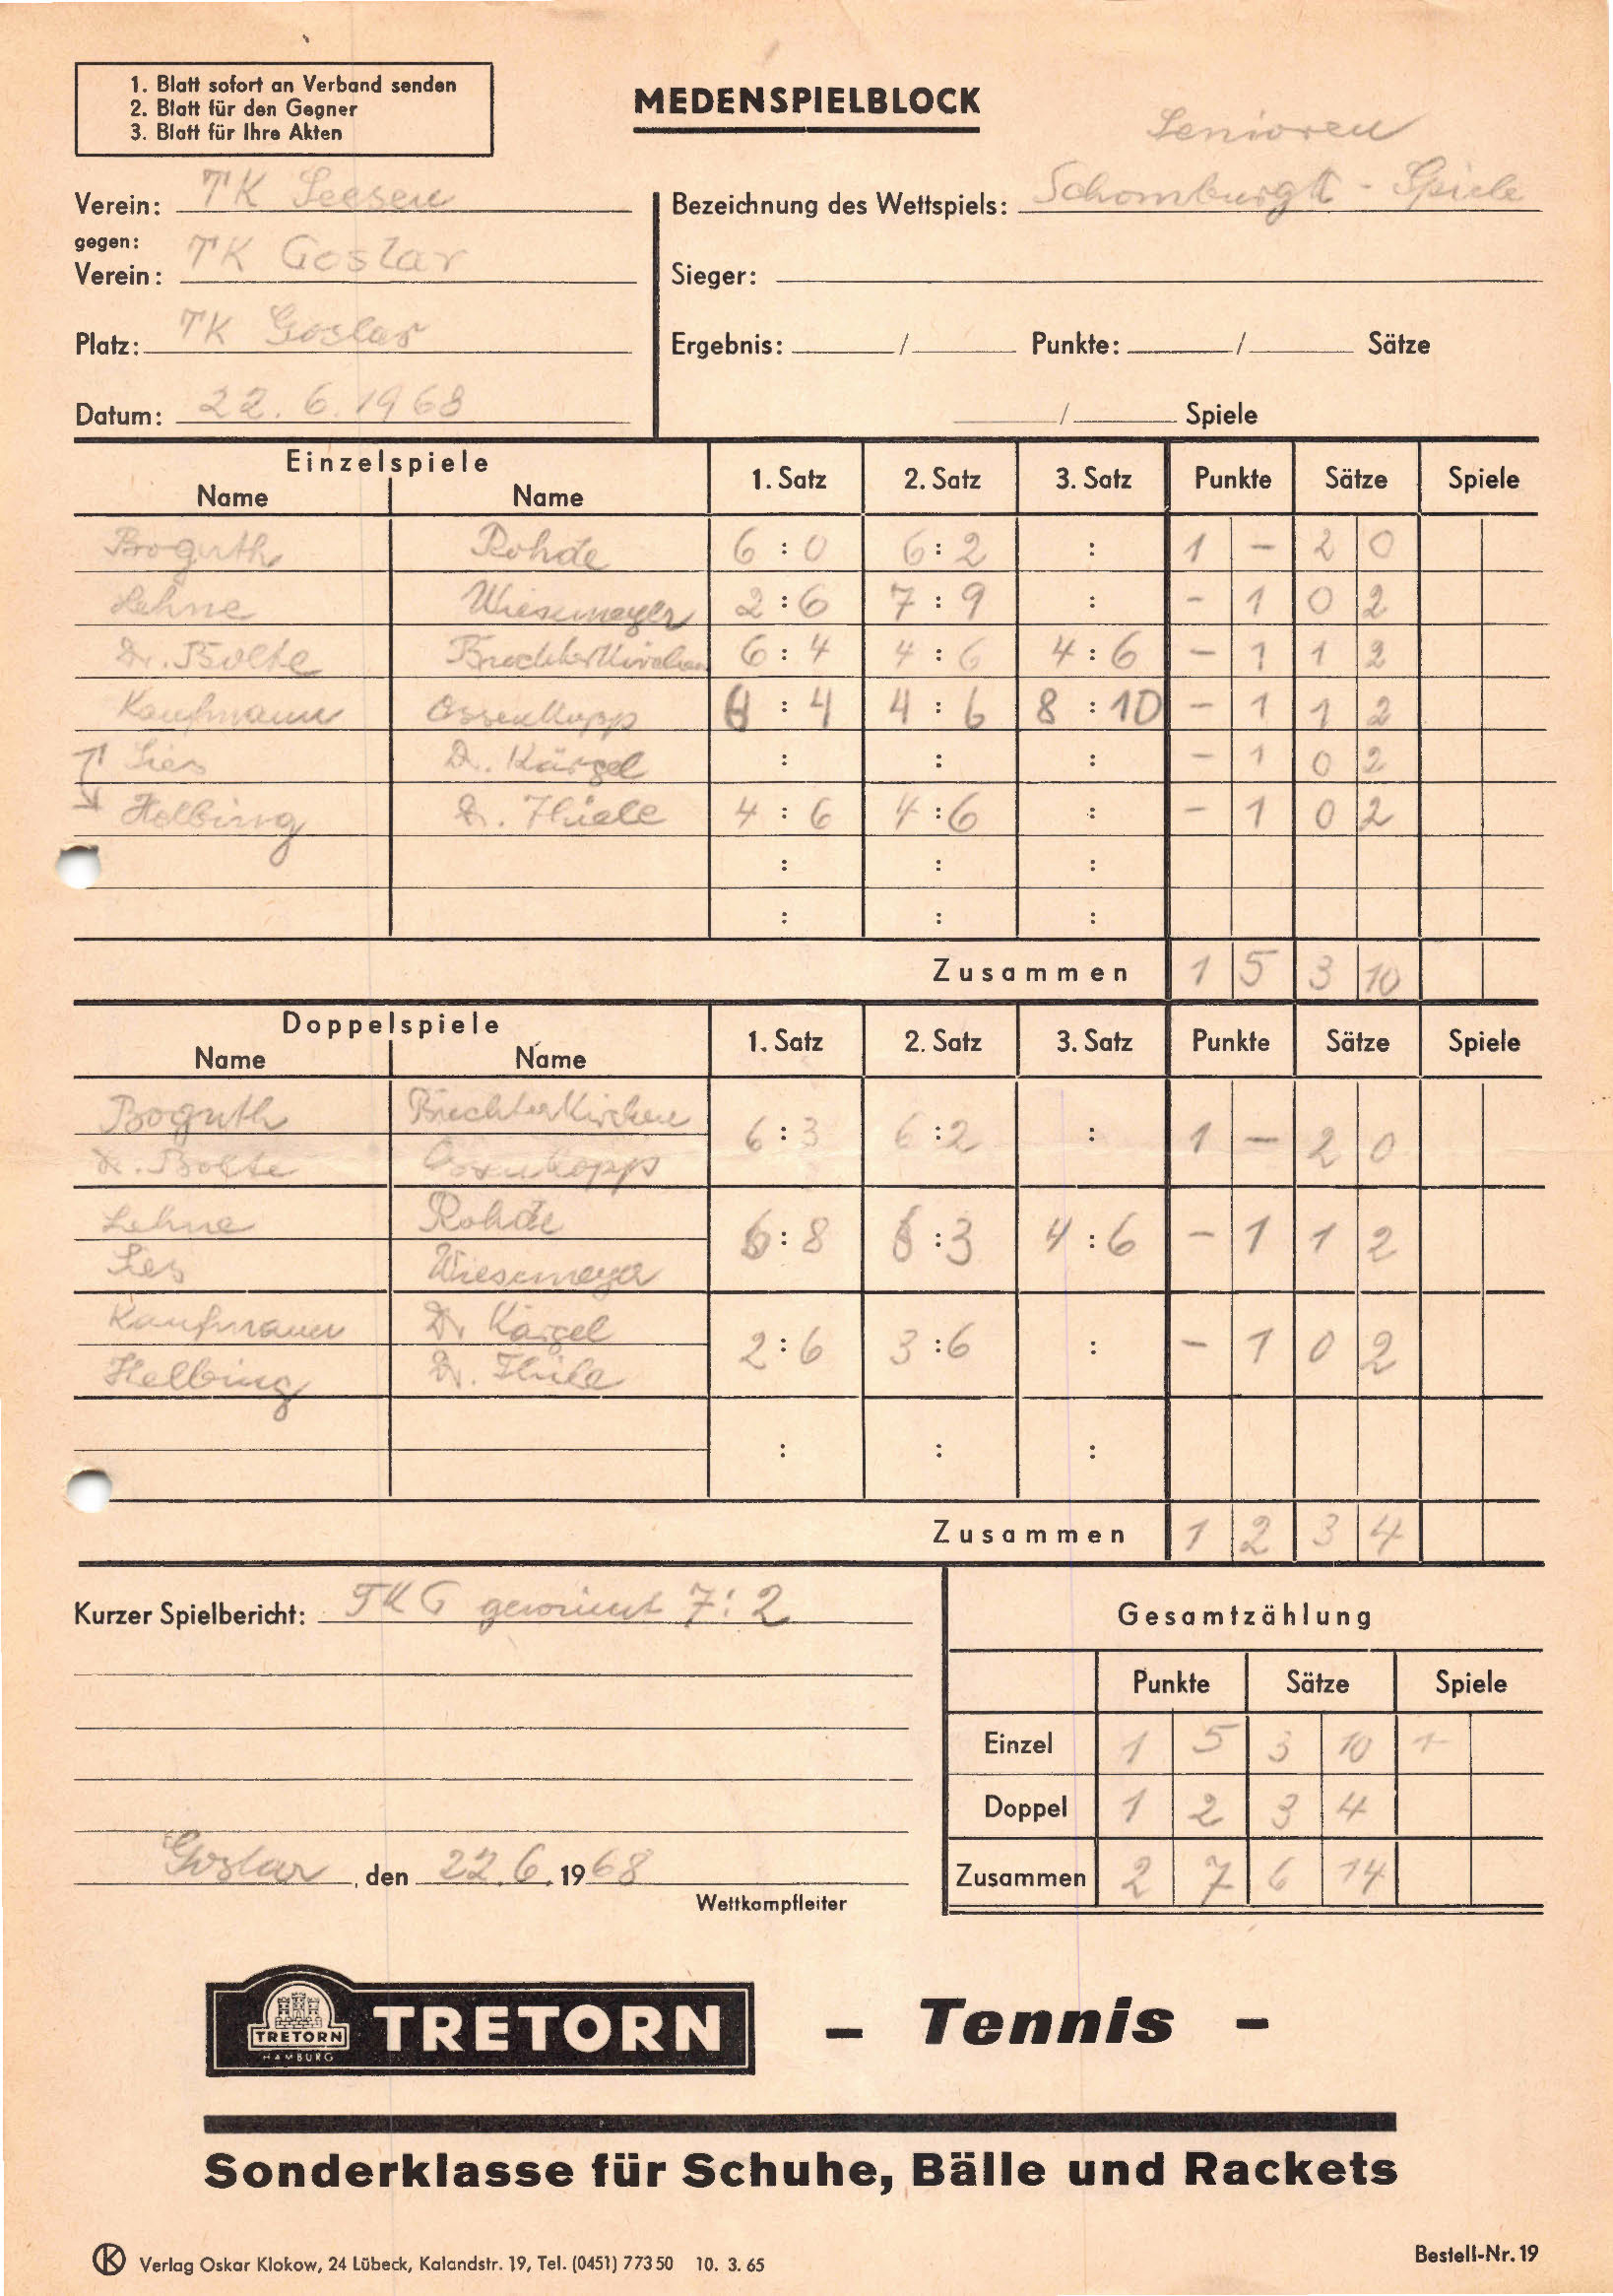 1. Blatt sofort an Verband senden
2. Blatt für den Gegner
3. Blatt für Ihre Akten
MEDENSPIELBLOCK
Senioren
Verein: TK Seesen
Bezeichnung des Wettspiels: Schomburgk - Spiele
gegen:
Verein: TK Goslar
Sieger:
Platz: TK Goslar
Ergebnis: / Punkte: / Sätze
Datum: 22.6.1968
/ Spiele
Einzelspiele
Name Name 1. Satz 2. Satz 3. Satz Punkte Sätze Spiele
Boguth Rohde 6 : 0 6 : 2 : 1 - 2 0
Lehne Wiesemeyer 2 : 6 7 : 9 : - 1 0 2
Dr. Bolte Brechterkirchen 6 : 4 4 : 6 4 : 6 - 1 1 2
Kaufmann Ossenkopp 6 : 4 4 : 6 8 : 10 - 1 1 2
Sies Dr. Kärgel : : : - 1 0 2
Helbing Dr. Thiele 4 : 6 4 : 6 : - 1 0 2
: : :
: : :
Zusammen 1 5 3 10
Doppelspiele
Name Name 1. Satz 2. Satz 3. Satz Punkte Sätze Spiele
Boguth Brechterkirchen
6 : 3 6 : 2 : 1 - 2 0
Dr. Bolte Ossenkopp
Lehne Rohde
6 : 8 6 : 3 4 : 6 - 1 1 2
Sies Wiesemeyer
Kaufmann Dr. Kärgel
2 : 6 3 : 6 : - 1 0 2
Helbing Dr. Thiele
: : :
Zusammen 1 2 3 4
Kurzer Spielbericht: TKG gewinnt 7:2
Gesamtzählung
Punkte Sätze Spiele
Einzel 1 5 3 10
Doppel 1 2 3 4
Zusammen 2 7 6 14
Goslar, den 22.6.1968
Wettkampfleiter
TRETORN
HAMBURG
TRETORN – Tennis –
Sonderklasse für Schuhe, Bälle und Rackets
K Verlag Oskar Klokow, 24 Lübeck, Kalandstr. 19, Tel. (0451) 773 50 10. 3. 65
Bestell-Nr. 19